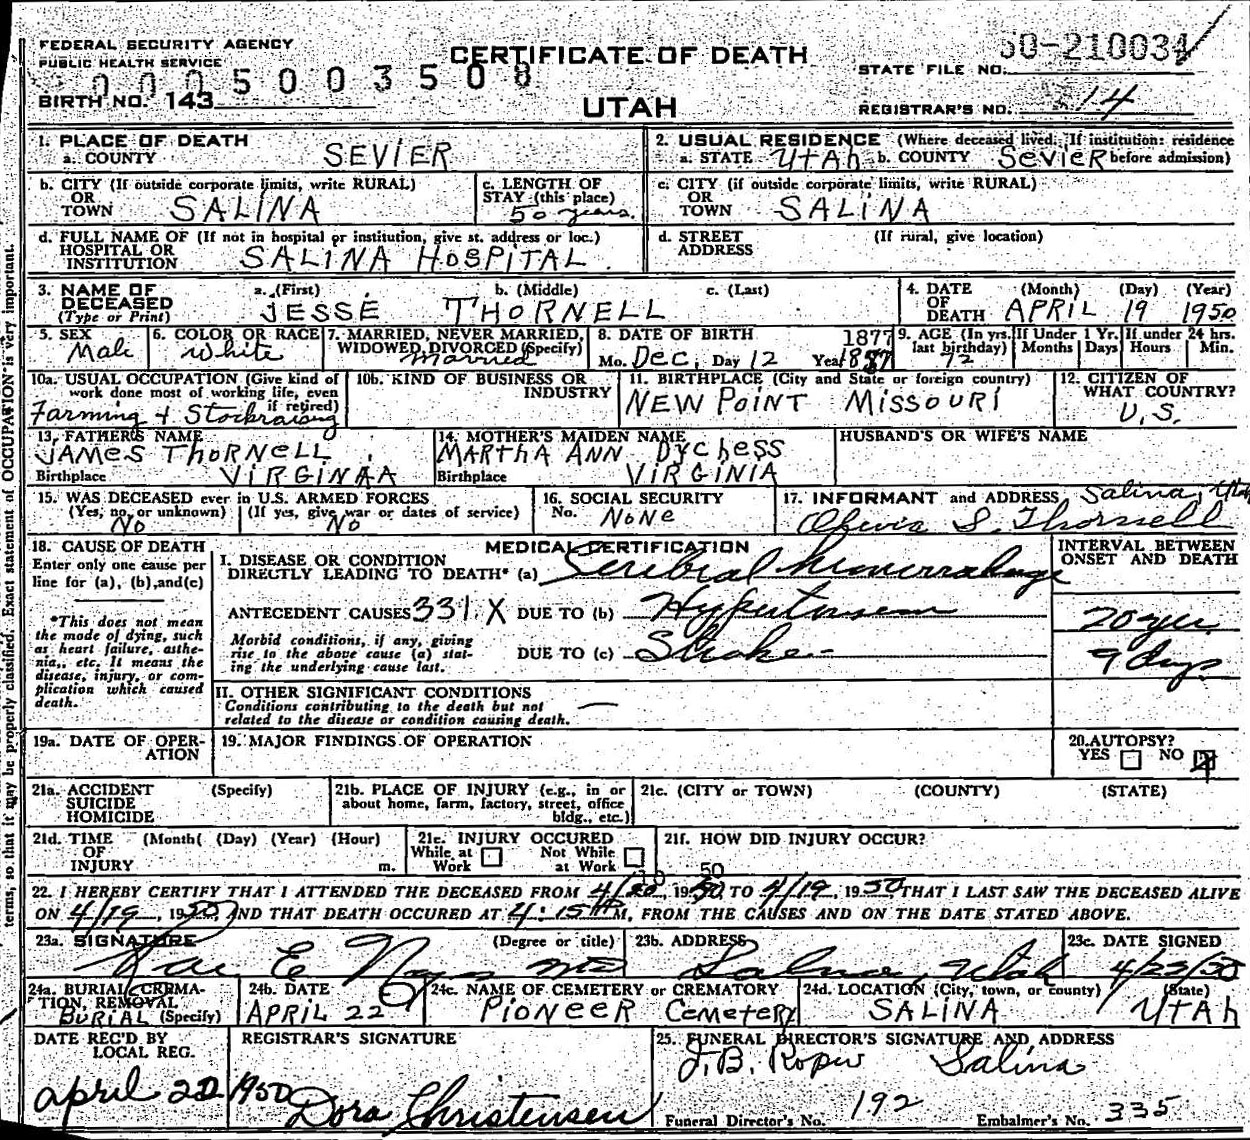 FEDERAL SECURITY AGENCY
PUBLIC HEALTH SERVICE
0005003508
BIRTH NO. 143
CERTIFICATE OF DEATH
UTAH
50-210034
STATE FILE NO.
REGISTRAR'S NO. 14
1. PLACE OF DEATH
a. COUNTY SEVIER
2. USUAL RESIDENCE (Where deceased lived. If institution: residence
a. STATE UTAH b. COUNTY SEVIER before admission)
b. CITY (If outside corporate limits, write RURAL)
OR
TOWN SALINA
c. LENGTH OF
STAY (this place)
50 years.
c. CITY (if outside corporate limits, write RURAL)
OR
TOWN SALINA
d. FULL NAME OF (If not in hospital or institution, give st. address or loc.)
HOSPITAL OR
INSTITUTION SALINA HOSPITAL
d. STREET (If rural, give location)
ADDRESS
3. NAME OF
DECEASED
(Type or Print)
a. (First) b. (Middle) c. (Last)
JESSE THORNELL
4. DATE (Month) (Day) (Year)
OF
DEATH APRIL 19 1950
5. SEX
Male
6. COLOR OR RACE
White
7. MARRIED, NEVER MARRIED,
WIDOWED, DIVORCED (Specify)
Married
8. DATE OF BIRTH 1877
Mo. Dec. Day 12 Year 1887
9. AGE (In yrs. last birthday)
72
If Under 1 Yr.
Months Days
If under 24 hrs.
Hours Min.
10a. USUAL OCCUPATION (Give kind of
work done most of working life, even
if retired)
Farming + Stockraising
10b. KIND OF BUSINESS OR
INDUSTRY
11. BIRTHPLACE (City and State or foreign country)
NEW POINT MISSOURI
12. CITIZEN OF
WHAT COUNTRY?
U.S.
13. FATHER'S NAME
JAMES THORNELL
Birthplace VIRGINAA
14. MOTHER'S MAIDEN NAME
MARTHA ANN DYCHESS
Birthplace VIRGINIA
HUSBAND'S OR WIFE'S NAME
15. WAS DECEASED ever in U.S. ARMED FORCES
(Yes, no, or unknown) (If yes, give war or dates of service)
No No
16. SOCIAL SECURITY
No. NONE
17. INFORMANT and ADDRESS Salina, Utah
Olivia S. Thornell
18. CAUSE OF DEATH
Enter only one cause per
line for (a), (b), and (c)
*This does not mean
the mode of dying, such
as heart failure, asthe-
nia, etc. It means the
disease, injury, or com-
plication which caused
death.
MEDICAL CERTIFICATION
I. DISEASE OR CONDITION
DIRECTLY LEADING TO DEATH* (a) Seribial hemorrahage
ANTECEDENT CAUSES 331.X DUE TO (b) Hypertension
Morbid conditions, if any, giving
rise to the above cause (a) stat-
ing the underlying cause last.
DUE TO (c) Stroke
INTERVAL BETWEEN
ONSET AND DEATH
20 yrs.
9 days
II. OTHER SIGNIFICANT CONDITIONS
Conditions contributing to the death but not
related to the disease or condition causing death. —
19a. DATE OF OPER-
ATION
19. MAJOR FINDINGS OF OPERATION
20. AUTOPSY?
YES NO
21a. ACCIDENT (Specify)
SUICIDE
HOMICIDE
21b. PLACE OF INJURY (e.g., in or
about home, farm, factory, street, office
bldg., etc.)
21c. (CITY or TOWN) (COUNTY) (STATE)
21d. TIME (Month( (Day) (Year) (Hour)
OF
INJURY m.
21e. INJURY OCCURED
While at Not While
Work at Work
21f. HOW DID INJURY OCCUR?
10 50
22. I HEREBY CERTIFY THAT I ATTENDED THE DECEASED FROM 4/20, 1950, TO 4/19, 1950 THAT I LAST SAW THE DECEASED ALIVE
ON 4/19, 1950, AND THAT DEATH OCCURED AT 4:15 M, FROM THE CAUSES AND ON THE DATE STATED ABOVE.
23a. SIGNATURE (Degree or title)
Rae E Noyes MD
23b. ADDRESS
Salina, Utah
23c. DATE SIGNED
4/22/50
24a. BURIAL, CREMA-
TION, REMOVAL
BURIAL (Specify)
24b. DATE
APRIL 22
24c. NAME OF CEMETERY or CREMATORY
PIONEER CEMETERY
24d. LOCATION (City, town, or county) (State)
SALINA UTAH
DATE REC'D BY
LOCAL REG.
April 22 1950
REGISTRAR'S SIGNATURE
Dora Christensen
25. FUNERAL DIRECTOR'S SIGNATURE AND ADDRESS
J.B. Roper Salina
Funeral Director's No. 192 Embalmer's No. 335
terms, so that it may be properly classified. Exact statement of OCCUPATION is very important.